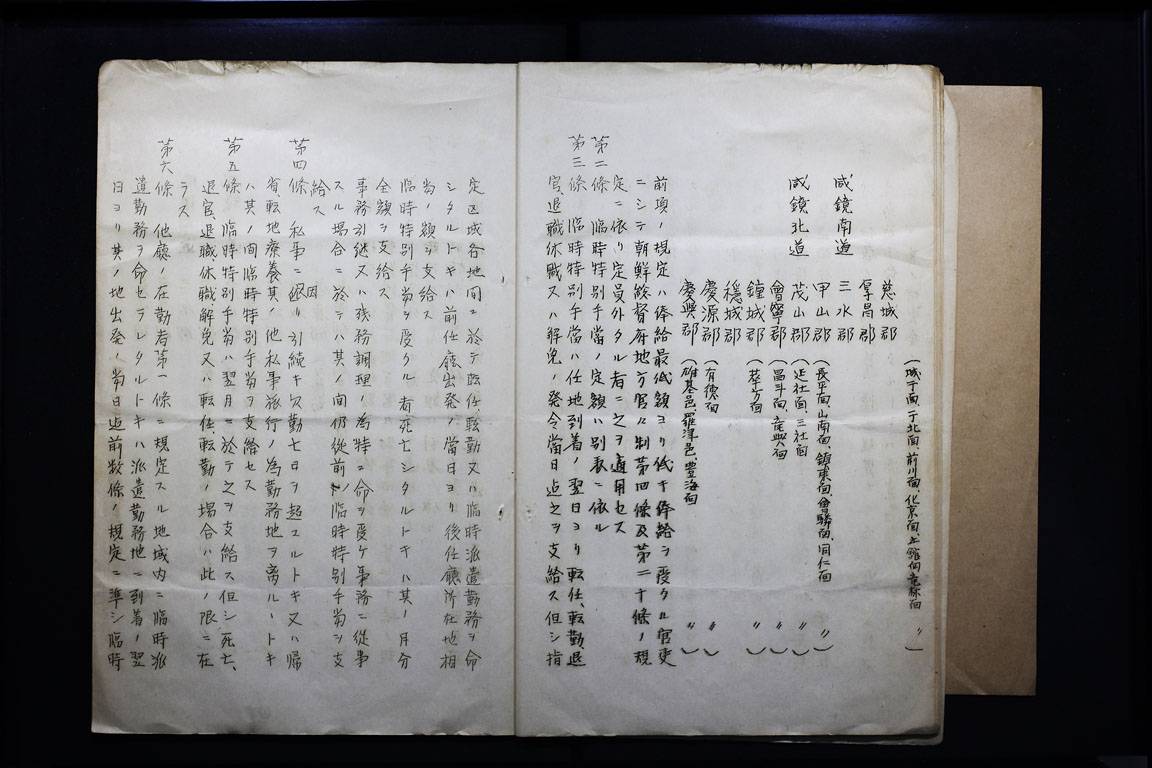 慈城郡
(城于面、于北面、前川面、化京面、上館面、立館面 〃 )
厚昌郡
咸鏡南道 三水郡
甲山郡 (長平面、山南面、鎮東面、會麟面、同仁面 〃 )
咸鏡北道 茂山郡 (延社面、三社面 〃 )
會寧郡 (昌斗面、竜興面 〃 )
鐘城郡 (華方面 〃 )
穩城郡
慶源郡 (有德面 〃 )
慶興郡 (雄基邑、羅津邑、豊海面 〃 )
前項ノ規定ハ俸給最低額ヨリ低キ俸給ヲ受クル官吏
ニシテ朝鮮総督府地方官々制第四條及第二十條ノ規
定ニ依リ定員外タル者ニ之ヲ適用セス
第二條 臨時特別手當ノ定額ハ別表ニ依ル
第三條 臨時特別手當ハ任地到着ノ翌日ヨリ転任、転勤、退
官、退職、休職又ハ解免ノ発令當日迄之ヲ支給ス但シ指
定区域各地間ニ於テ転任、転勤又ハ臨時派遣勤務ヲ命
シタルトキハ前任廳出発ノ當日ヨリ後任廳所在地相
当ノ額ヲ支給ス
臨時特別手当ヲ受クル者死亡シタルトキハ其ノ月分
全額ヲ支給ス
事務引継又ハ残務調理ノ為特ニ命ヲ受ケ事務ニ從事
スル場合ニ於テハ其ノ間仍從前ノ臨時特別手当ヲ支
給ス
第四條 私事ニ因リ引続キ欠勤七日ヲ超ユルトキ又ハ帰
省、転地療養其ノ他私事旅行ノ為勤務地ヲ离ルヽトキ
ハ其ノ間臨時特別手当ヲ支給セス
第五條 臨時特別手当ハ翌月ニ於テ之ヲ支給ス但シ死亡、
退官、退職、休職、解免又ハ転任、転勤ノ場合ハ此ノ限ニ在
ラス
第六條 他廳ノ在勤者第一條ニ規定スル地域内ニ臨時派
遣勤務ヲ命セラレタルトキハ派遣勤務地ニ到着ノ翌
日ヨリ其ノ地出発ノ当日迄前数條ノ規定ニ準シ臨時